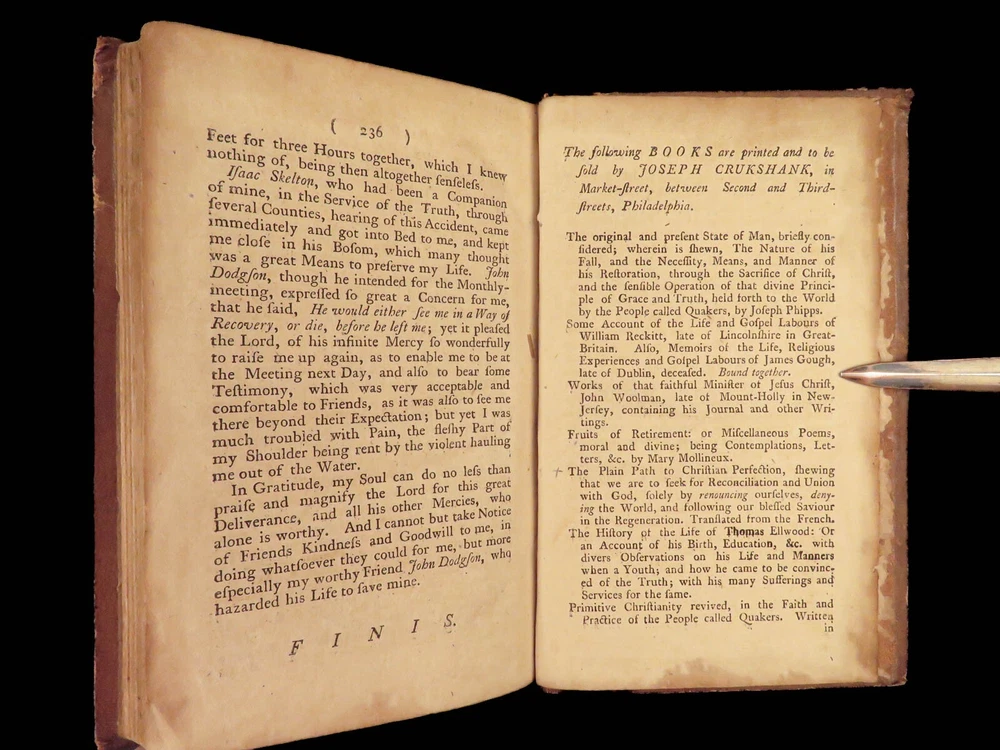 ( 236 )
Feet for three Hours together, which I knew
nothing of, being then altogether ſenſeleſs.
Iſaac Skelton, who had been a Companion
of mine, in the Service of the Truth, through
ſeveral Counties, hearing of this Accident, came
immediately and got into Bed to me, and kept
me cloſe in his Boſom, which many thought
was a great Means to preſerve my Life. John
Dodgſon, though he intended for the Monthly-
meeting, expreſſed ſo great a Concern for me,
that he ſaid, He would either ſee me in a Way of
Recovery, or die, before he left me; yet it pleaſed
the Lord, of his infinite Mercy ſo wonderfully
to raiſe me up again, as to enable me to be at
the Meeting next Day, and alſo to bear ſome
Teſtimony, which was very acceptable and
comfortable to Friends, as it was alſo to ſee me
there beyond their Expectation; but yet I was
much troubled with Pain, the fleſhy Part of
my Shoulder being rent by the violent hauling
me out of the Water.
In Gratitude, my Soul can do no leſs than
praiſe and magnify the Lord for this great
Deliverance, and all his other Mercies, who
alone is worthy. And I cannot but take Notice
of Friends Kindneſs and Goodwill to me, in
doing whatſoever they could for me, but more
eſpecially my worthy Friend John Dodgſon, who
hazarded his Life to ſave mine.
F I N I S.
The following BOOKS are printed and to be
ſold by JOSEPH CRUKSHANK, in
Market-ſtreet, between Second and Third-
ſtreets, Philadelphia.
The original and preſent State of Man, briefly con-
ſidered; wherein is ſhewn, The Nature of his
Fall, and the Neceſſity, Means, and Manner of
his Reſtoration, through the Sacrifice of Chriſt,
and the ſenſible Operation of that divine Princi-
ple of Grace and Truth, held forth to the World
by the People called Quakers, by Joſeph Phipps.
Some Account of the Life and Goſpel Labours of
William Reckitt, late of Lincolnſhire in Great-
Britain. Alſo, Memoirs of the Life, Religious
Experiences and Goſpel Labours of James Gough,
late of Dublin, deceaſed. Bound together.
Works of that faithful Miniſter of Jeſus Chriſt,
John Woolman, late of Mount-Holly in New-
Jerſey, containing his Journal and other Wri-
tings.
Fruits of Retirement: or Miſcellaneous Poems,
moral and divine; being Contemplations, Let-
ters, &c. by Mary Mollineux.
The Plain Path to Chriſtian Perfection, ſhewing
that we are to ſeek for Reconciliation and Union
with God, ſolely by renouncing ourſelves, deny-
ing the World, and following our bleſſed Saviour
in the Regeneration. Tranſlated from the French.
The Hiſtory of the Life of Thomas Ellwood: Or
an Account of his Birth, Education, &c. with
divers Obſervations on his Life and Manners
when a Youth; and how he came to be convinc-
ed of the Truth; with his many Sufferings and
Services for the ſame.
Primitive Chriſtianity revived, in the Faith and
Practice of the People called Quakers. Written
in